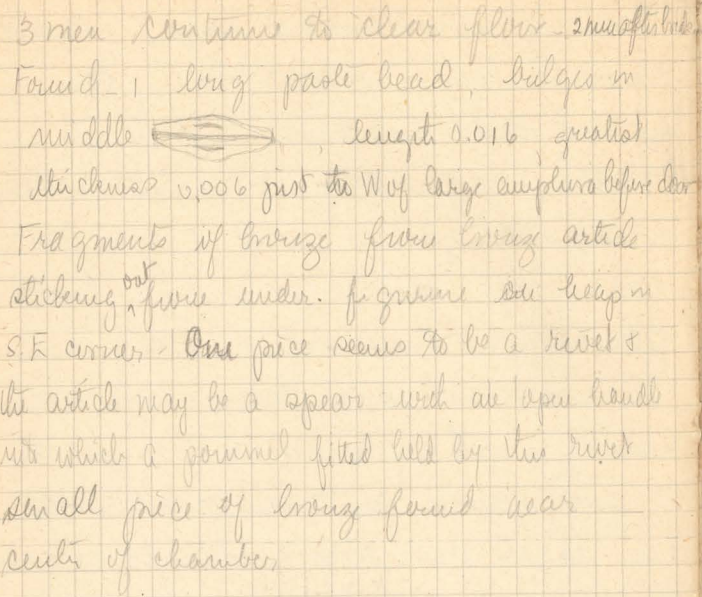 3 men continue to clear floor. 2 men after bride
Found - 1 long paste bead, bulges in
middle , length 0.016 greatest
thickness 0,006 just to W of large amphora before door
Fragments of bronze from bronze article
sticking out from under. figurine on heap in
S.E corner. One piece seems to be a rivet &
the article may be a spear with an open handle
into which a pommel fitted held by this rivet
small piece of bronze found near
center of chamber